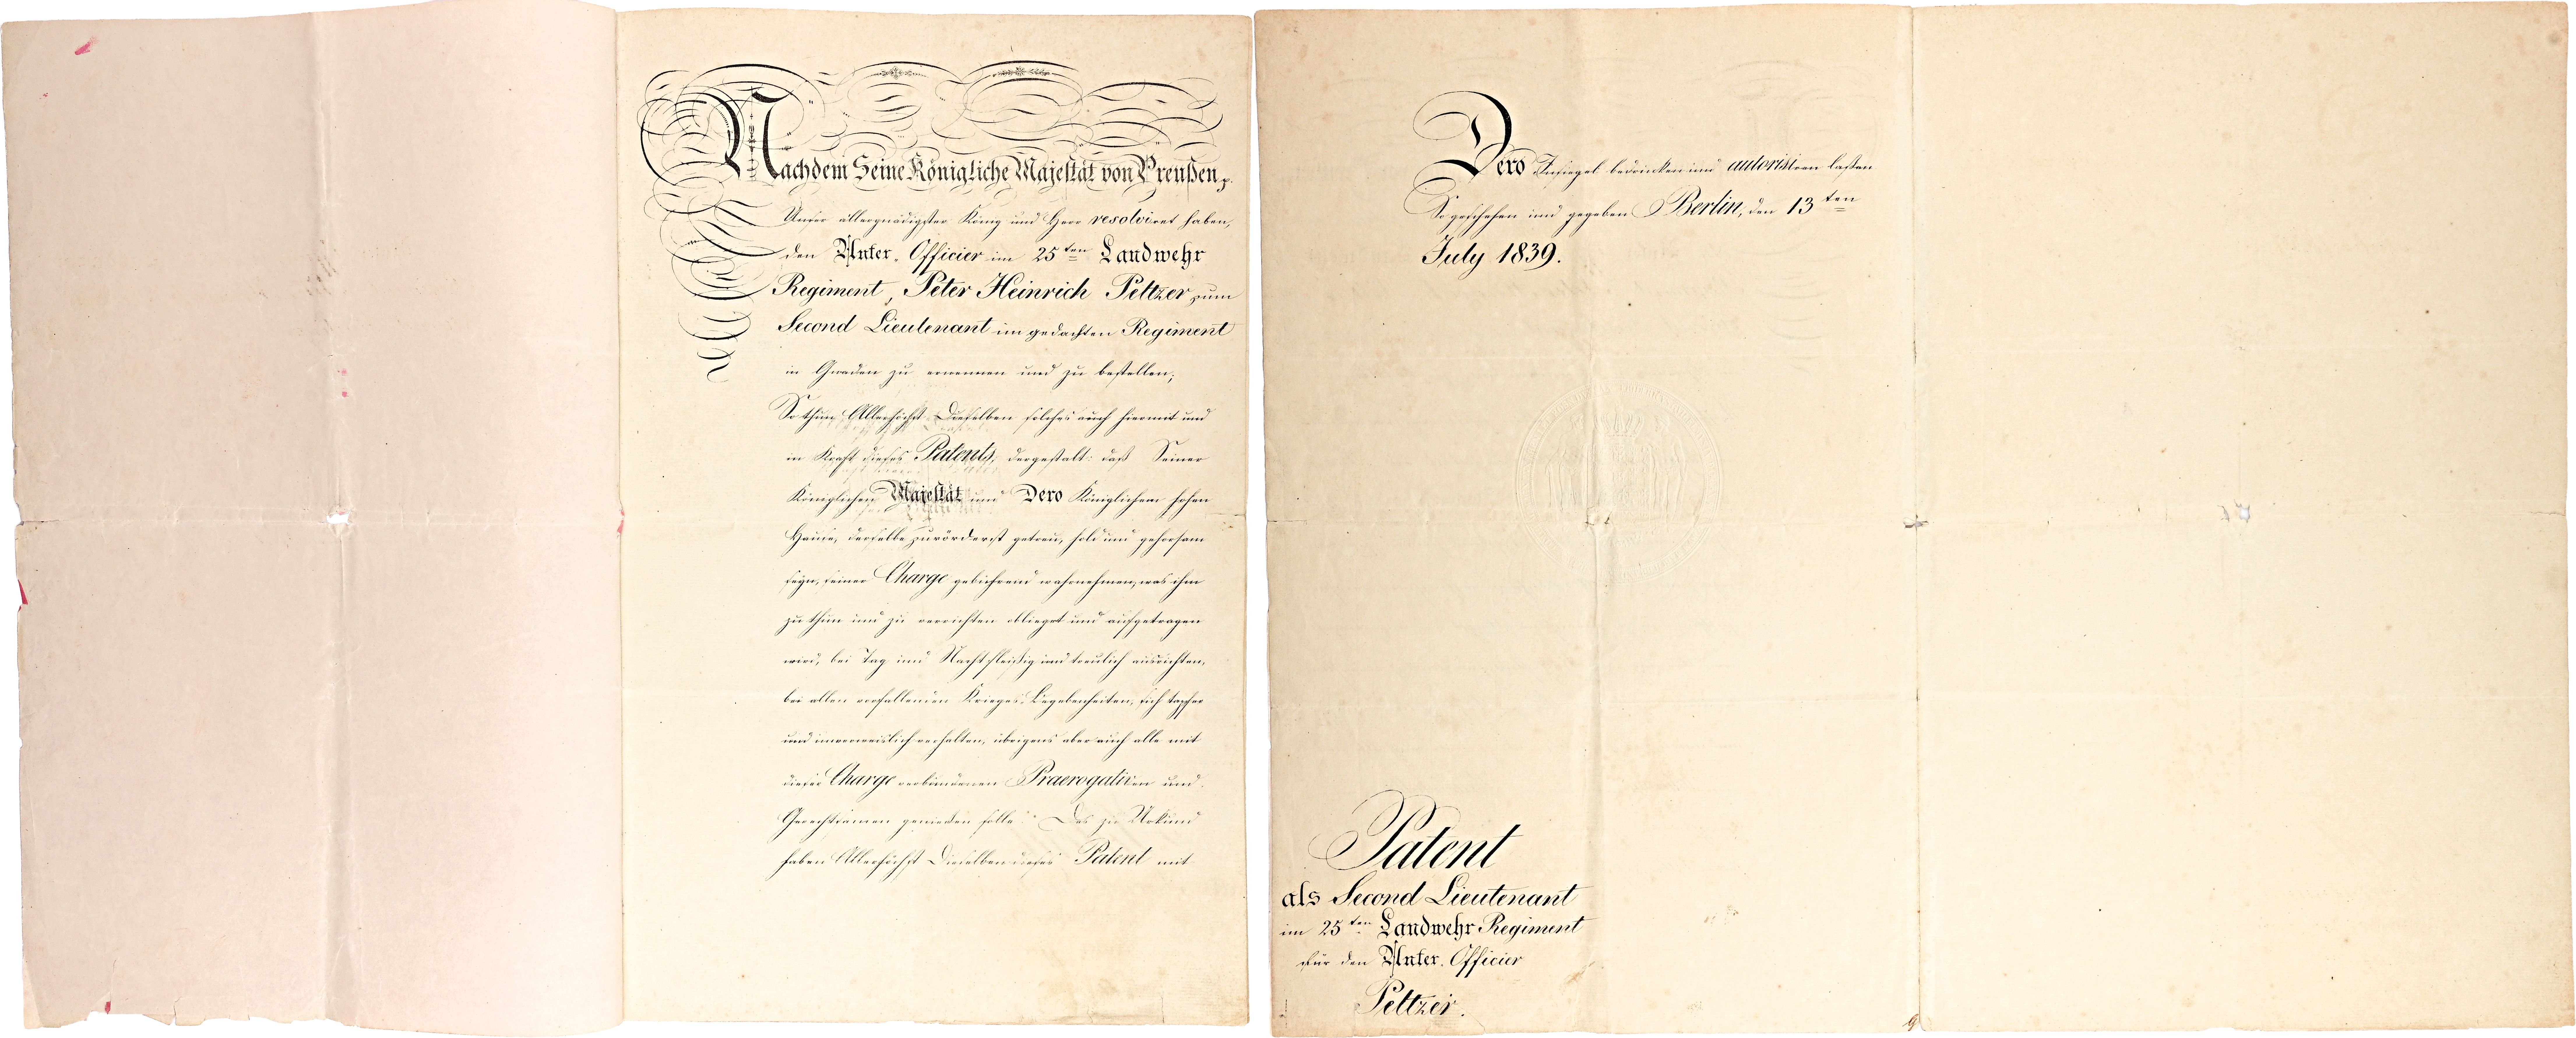 Nachdem Seine Königliche Majestät von Preußen p.
Unser allergnädigster König und Herr resolviret haben,
den Unter-Officier im 25ten Landwehr
Regiment, Peter Heinrich Peltzer zum
Second Lieutenant im gedachten Regiment
in Gnaden zu ernennen und zu bestellen;
So thun Allerhöchst Dieselben solches auch hiermit und
in Kraft dieses Patents, dergestalt: daß Seiner
Königlichen Majestät und Dero Königlichem hohen
Hause, derselbe zuvörderst getreu, hold und gehorsam
seyn, seiner Charge gebührend wahrnehmen, was ihm
zu thun und zu verrichten oblieget und aufgetragen
wird, bei Tag und Nacht fleißig und treulich ausrichten,
bei allen vorfallenden Krieges-Begebenheiten, sich tapfer
und unverweislich verhalten, übrigens aber auch alle mit
dieser Charge verbundenen Praerogativen und
Gerechtsamen genießen solle. Des zu Urkund
haben Allerhöchst Dieselben dieses Patent mit
Dero Insiegel bedrucken und autorisiren lassen
So geschehen und gegeben Berlin, den 13ten
July 1839.
Patent
als Second Lieutenant
im 25ten Landwehr Regiment
für den Unter-Officier
Peltzer.